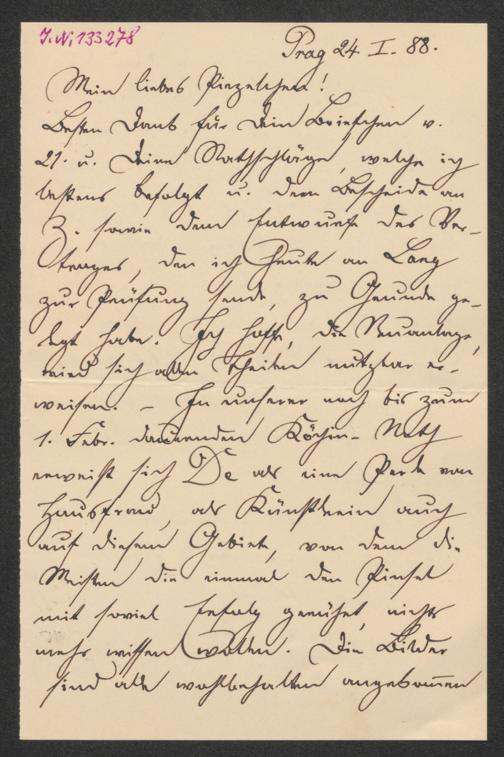 J.N. 133278
Prag 24. I. 88.
Mein liebes Pinzelchen!
Besten Dank für Dein Briefchen v.
21. u. Deine Rathschläge, welche ich
bestens befolgt u. dem Bescheide an
Z. sowie dem Entwurfe des Ver-
trages, den ich heute an Lang
zur Prüfung sende, zu Grunde ge-
legt habe. Ich hoffe, die Neuanlage
wird sich allen Theilen nutzbar er-
weisen. – In unserer noch bis zum
1. Febr. dauernden Köchin-Noth
erweist sich De als eine Perle von
Hausfrau, als Künstlerin auch
auf diesem Gebiete, von dem die
Meisten die einmal den Pinsel
mit soviel Erfolg gerührt, nichts
mehr wissen wollen. Die Bilder
sind alle wohlbehalten angekommen